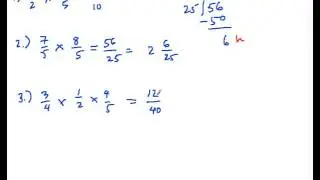 2 5 10
25 / 56
- 50
6 R
2.) 7/5 x 8/5 = 56/25 = 2 6/25
3.) 3/4 x 1/2 x 4/5 = 12/40